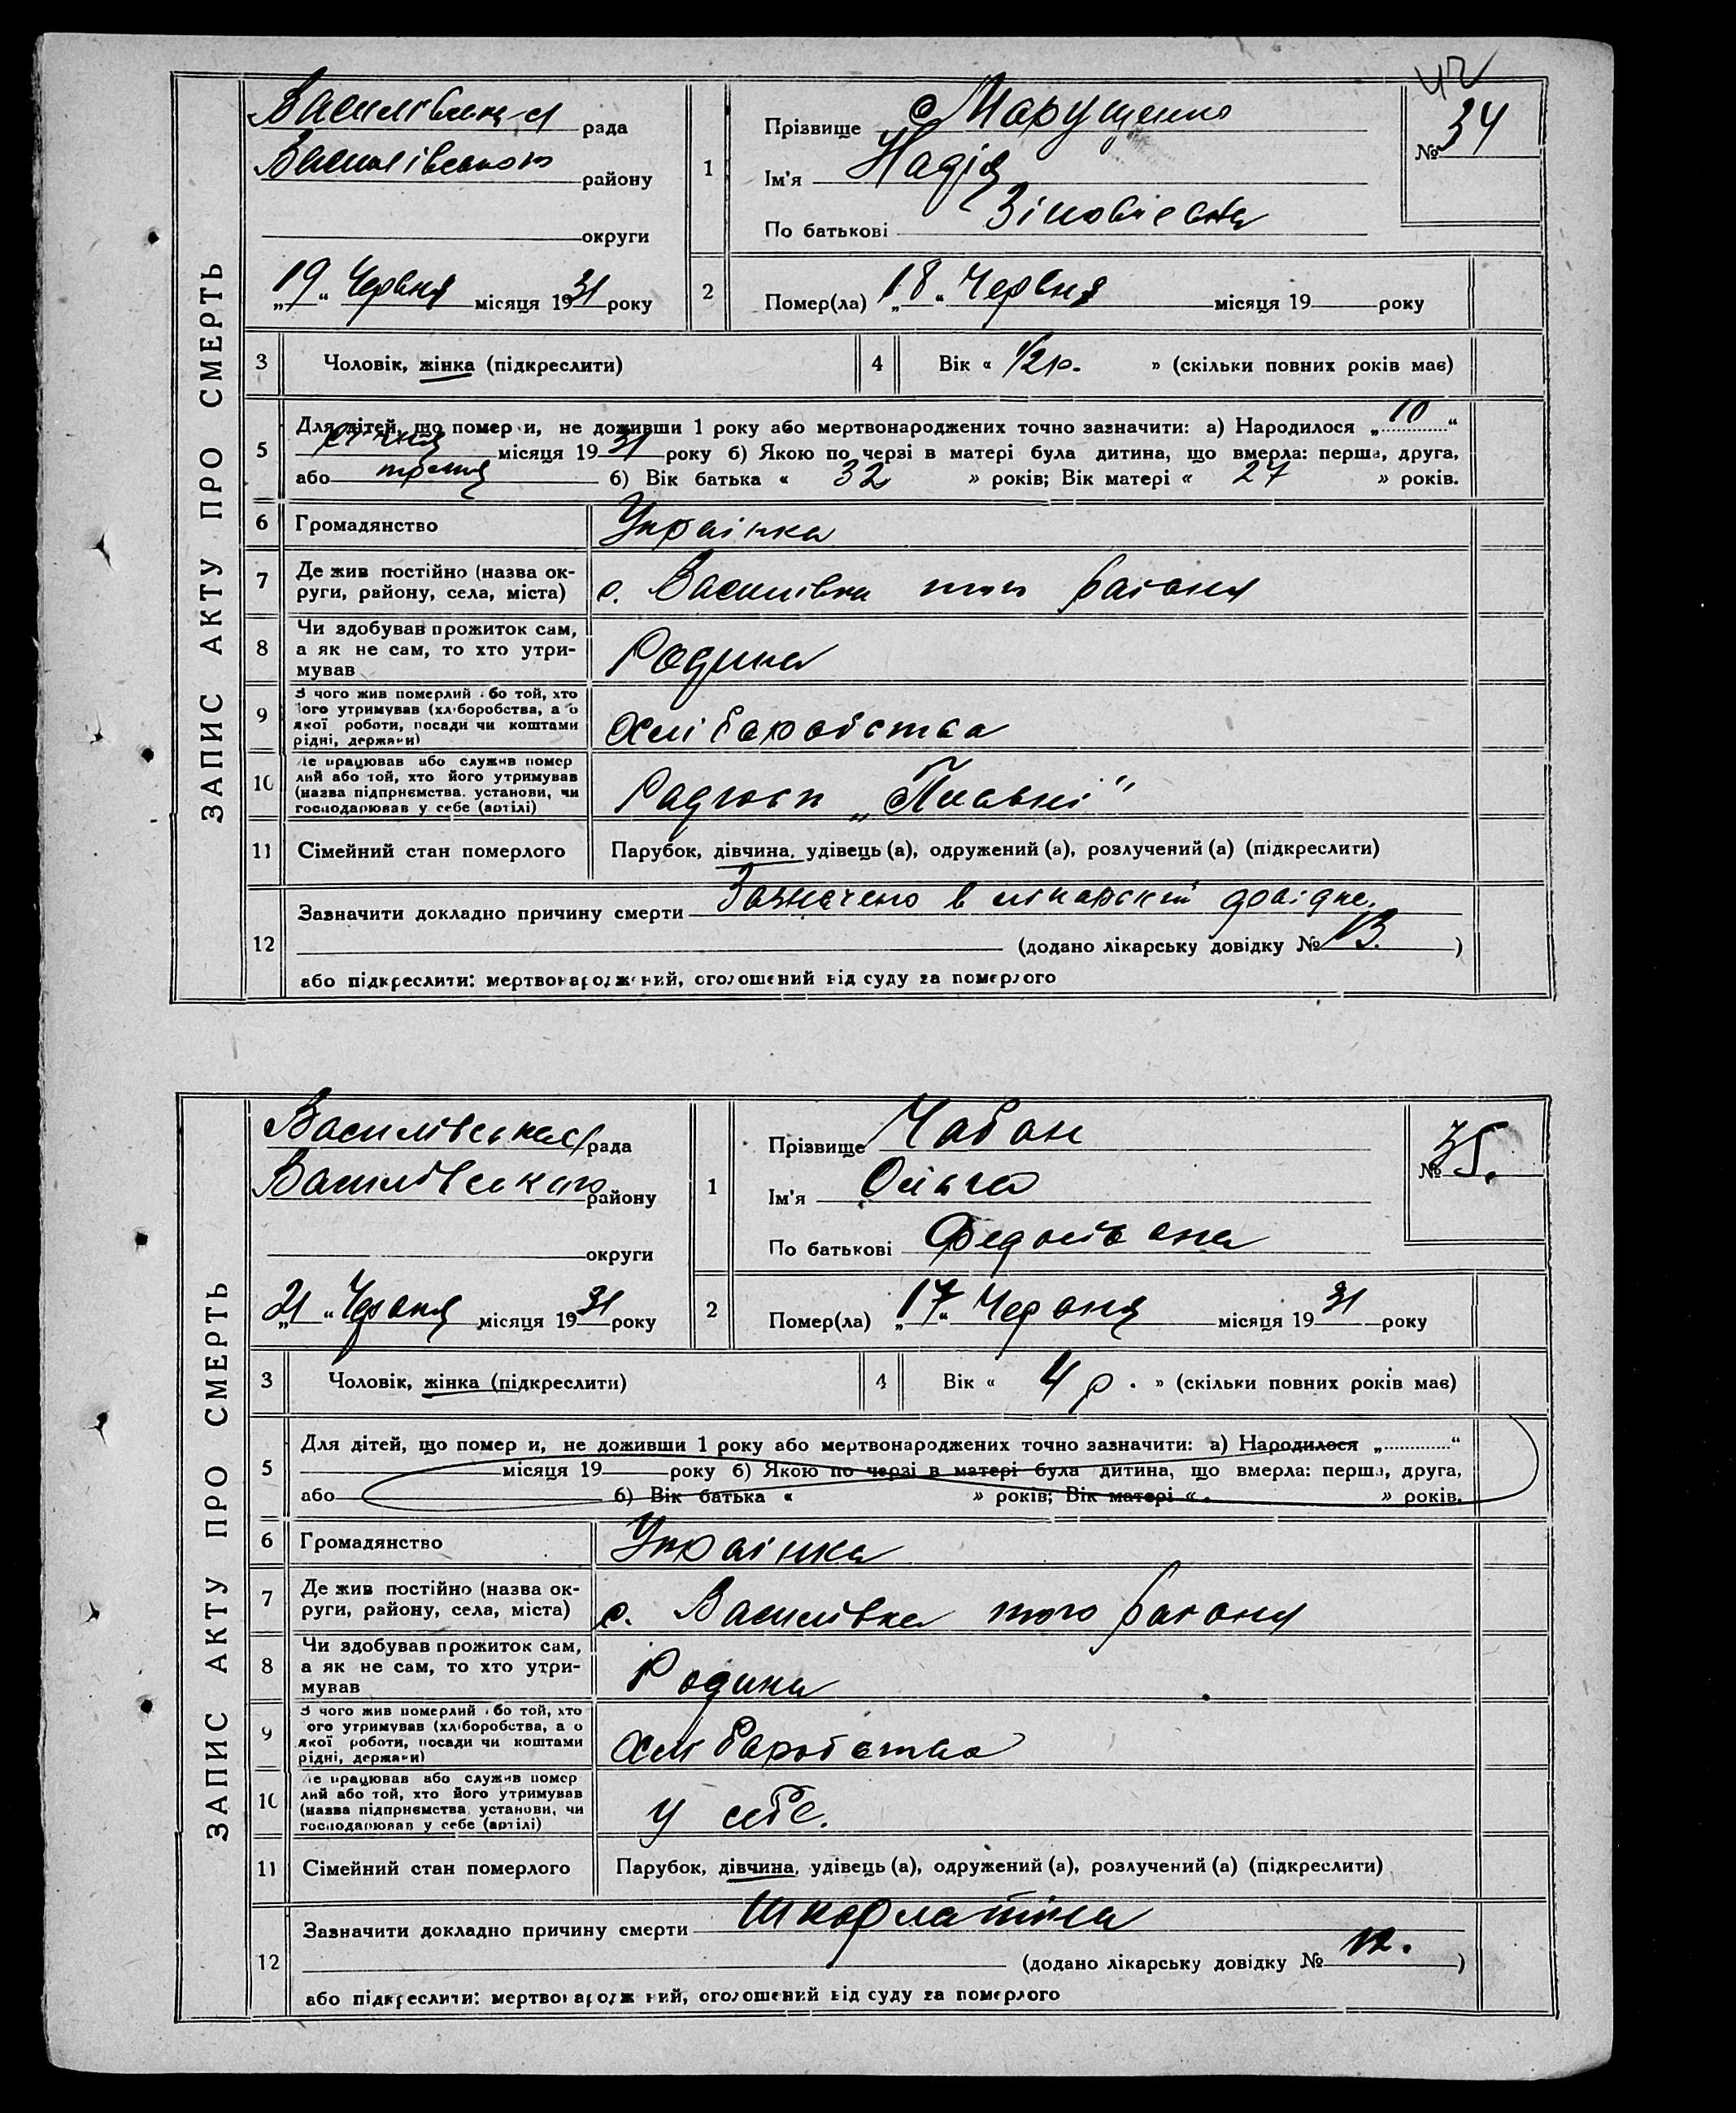 42
ЗАПИС АКТУ ПРО СМЕРТЬ
Василівська рада
Василівського району
округи
„19“ Червня місяця 1931 року
1
Прізвище Марущенко
Ім'я Надія
По батькові Зіновіевна
№ 34
2
Помер(ла) „18“ Червня місяця 19 року
3 Чоловік, жінка (підкреслити)
4 Вік « 1/2 р. » (скільки повних років має)
5 Для дітей, що померли, не доживши 1 року або мертвонароджених точно зазначити: а) Народилося „10“
січня місяця 1931 року б) Якою по черзі в матері була дитина, що вмерла: перша, друга,
або третя б) Вік батька « 32 » років; Вік матері « 27 » років.
6 Громадянство Українка
7 Де жив постійно (назва ок-
руги, району, села, міста) с. Василівка того району
8 Чи здобував прожиток сам,
а як не сам, то хто утри-
мував Родина
9 З чого жив померлий або той, хто
його утримував (хліборобства, а о
якої роботи, посади чи коштами
рідні, держави) Хліборобства
10 Де працював або служив помер
лий або той, хто його утримував
(назва підприємства, установи, чи
господарював у себе (артілі) Радгосп „Плавні“
11 Сімейний стан померлого Парубок, дівчина, удівець (а), одружений (а), розлучений (а) (підкреслити)
12 Зазначити докладно причину смерти Зазначено в лікарскій довідке.
(додано лікарську довідку № 13. )
або підкреслити: мертвонароджений, оголошений від суду за померлого
ЗАПИС АКТУ ПРО СМЕРТЬ
Василівська рада
Василівського району
округи
„21“ Червня місяця 1931 року
1
Прізвище Чабан
Ім'я Ольга
По батькові
№ 35.
2
Помер(ла) „17“ Червня місяця 1931 року
3 Чоловік, жінка (підкреслити)
4 Вік « 4 р. » (скільки повних років має)
5 Для дітей, що померли, не доживши 1 року або мертвонароджених точно зазначити: а) Народилося „ “
місяця 19 року б) Якою по черзі в матері була дитина, що вмерла: перша, друга,
або б) Вік батька « » років; Вік матері « » років.
6 Громадянство Українка
7 Де жив постійно (назва ок-
руги, району, села, міста) с. Василівка того району
8 Чи здобував прожиток сам,
а як не сам, то хто утри-
мував Родина
9 З чого жив померлий або той, хто
його утримував (хліборобства, а о
якої роботи, посади чи коштами
рідні, держави) Хліборобства
10 Де працював або служив помер
лий або той, хто його утримував
(назва підприємства, установи, чи
господарював у себе (артілі) У себе.
11 Сімейний стан померлого Парубок, дівчина, удівець (а), одружений (а), розлучений (а) (підкреслити)
12 Зазначити докладно причину смерти Шкарлатіна
(додано лікарську довідку № 12. )
або підкреслити: мертвонароджений, оголошений від суду за померлого